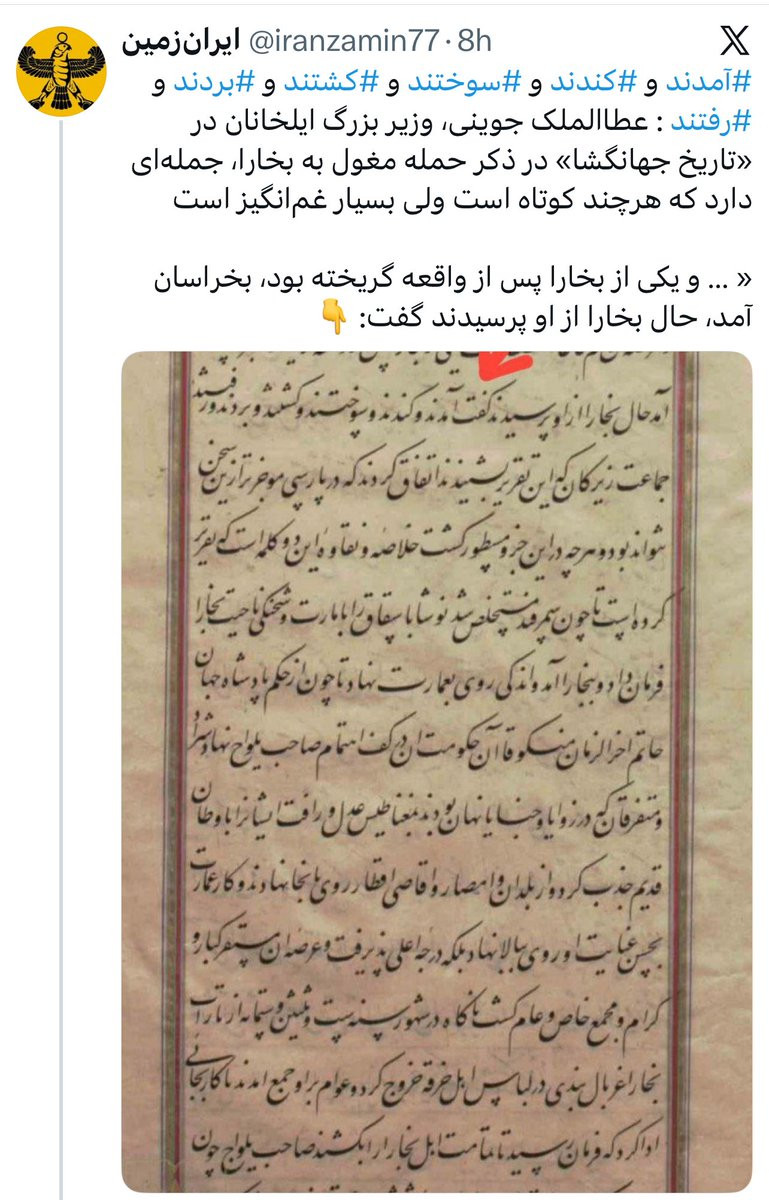 ایران‌زمین @iranzamin77 · 8h
#آمدند و #کندند و #سوختند و #کشتند و #بردند و
#رفتند : عطاالملک جوینی، وزیر بزرگ ایلخانان در
«تاریخ جهانگشا» در ذکر حمله مغول به بخارا، جمله‌ای
دارد که هرچند کوتاه است ولی بسیار غم‌انگیز است
« ... و یکی از بخارا پس از واقعه گریخته بود، بخراسان
آمد، حال بخارا از او پرسیدند گفت: 👇
آمد حال بخارا از او پرسیدند گفت آمدند و کندند و سوختند و کشتند و بردند و رفتند
جماعت زیرکان که این تقریر بشنیدند اتفاق کردند که در پارسی موجزتر ازین سخن
نتواند بود و هرچه درین جزو مسطور گشت خلاصه و نقاوه این دو کلمه است که تقریر
کرده است تا چون سمرقند مستخلص شد را بامارت و شحنگی ناحیت بخارا
فرمان داد و ببخارا آمد و اندکی روی بعمارت نهاد تا چون از حکم پادشاه جهان
حاتم اخر الزمان قاآن حکومت ان در کف اهتمام صاحب یلواج نهاد
و متفرقان که در زوایا و خبایا نهان بودند بمغناطیس عدل و رافت ایشانرا باوطان
قدیم جذب کرد و از بلدان و امصار و اقاصی اقطار روی بانجا نهادند و کار عمارت
بحسن عنایت او روی ببالا نهاد بلکه درجه اعلی پذیرفت و عرصه ان مستقر کبار و
کرام و مجمع خاص و عام گشت ناگاه در شهور سنه ست و ثلثین و ستمائه از تاراب
بخارا غربال بندی در لباس اهل خرقه خروج کرد و عوام برو جمع امدند تا کار بجائی
ادا کرد که فرمان رسید تا تمامت اهل بخارا را بکشند صاحب یلواج چون